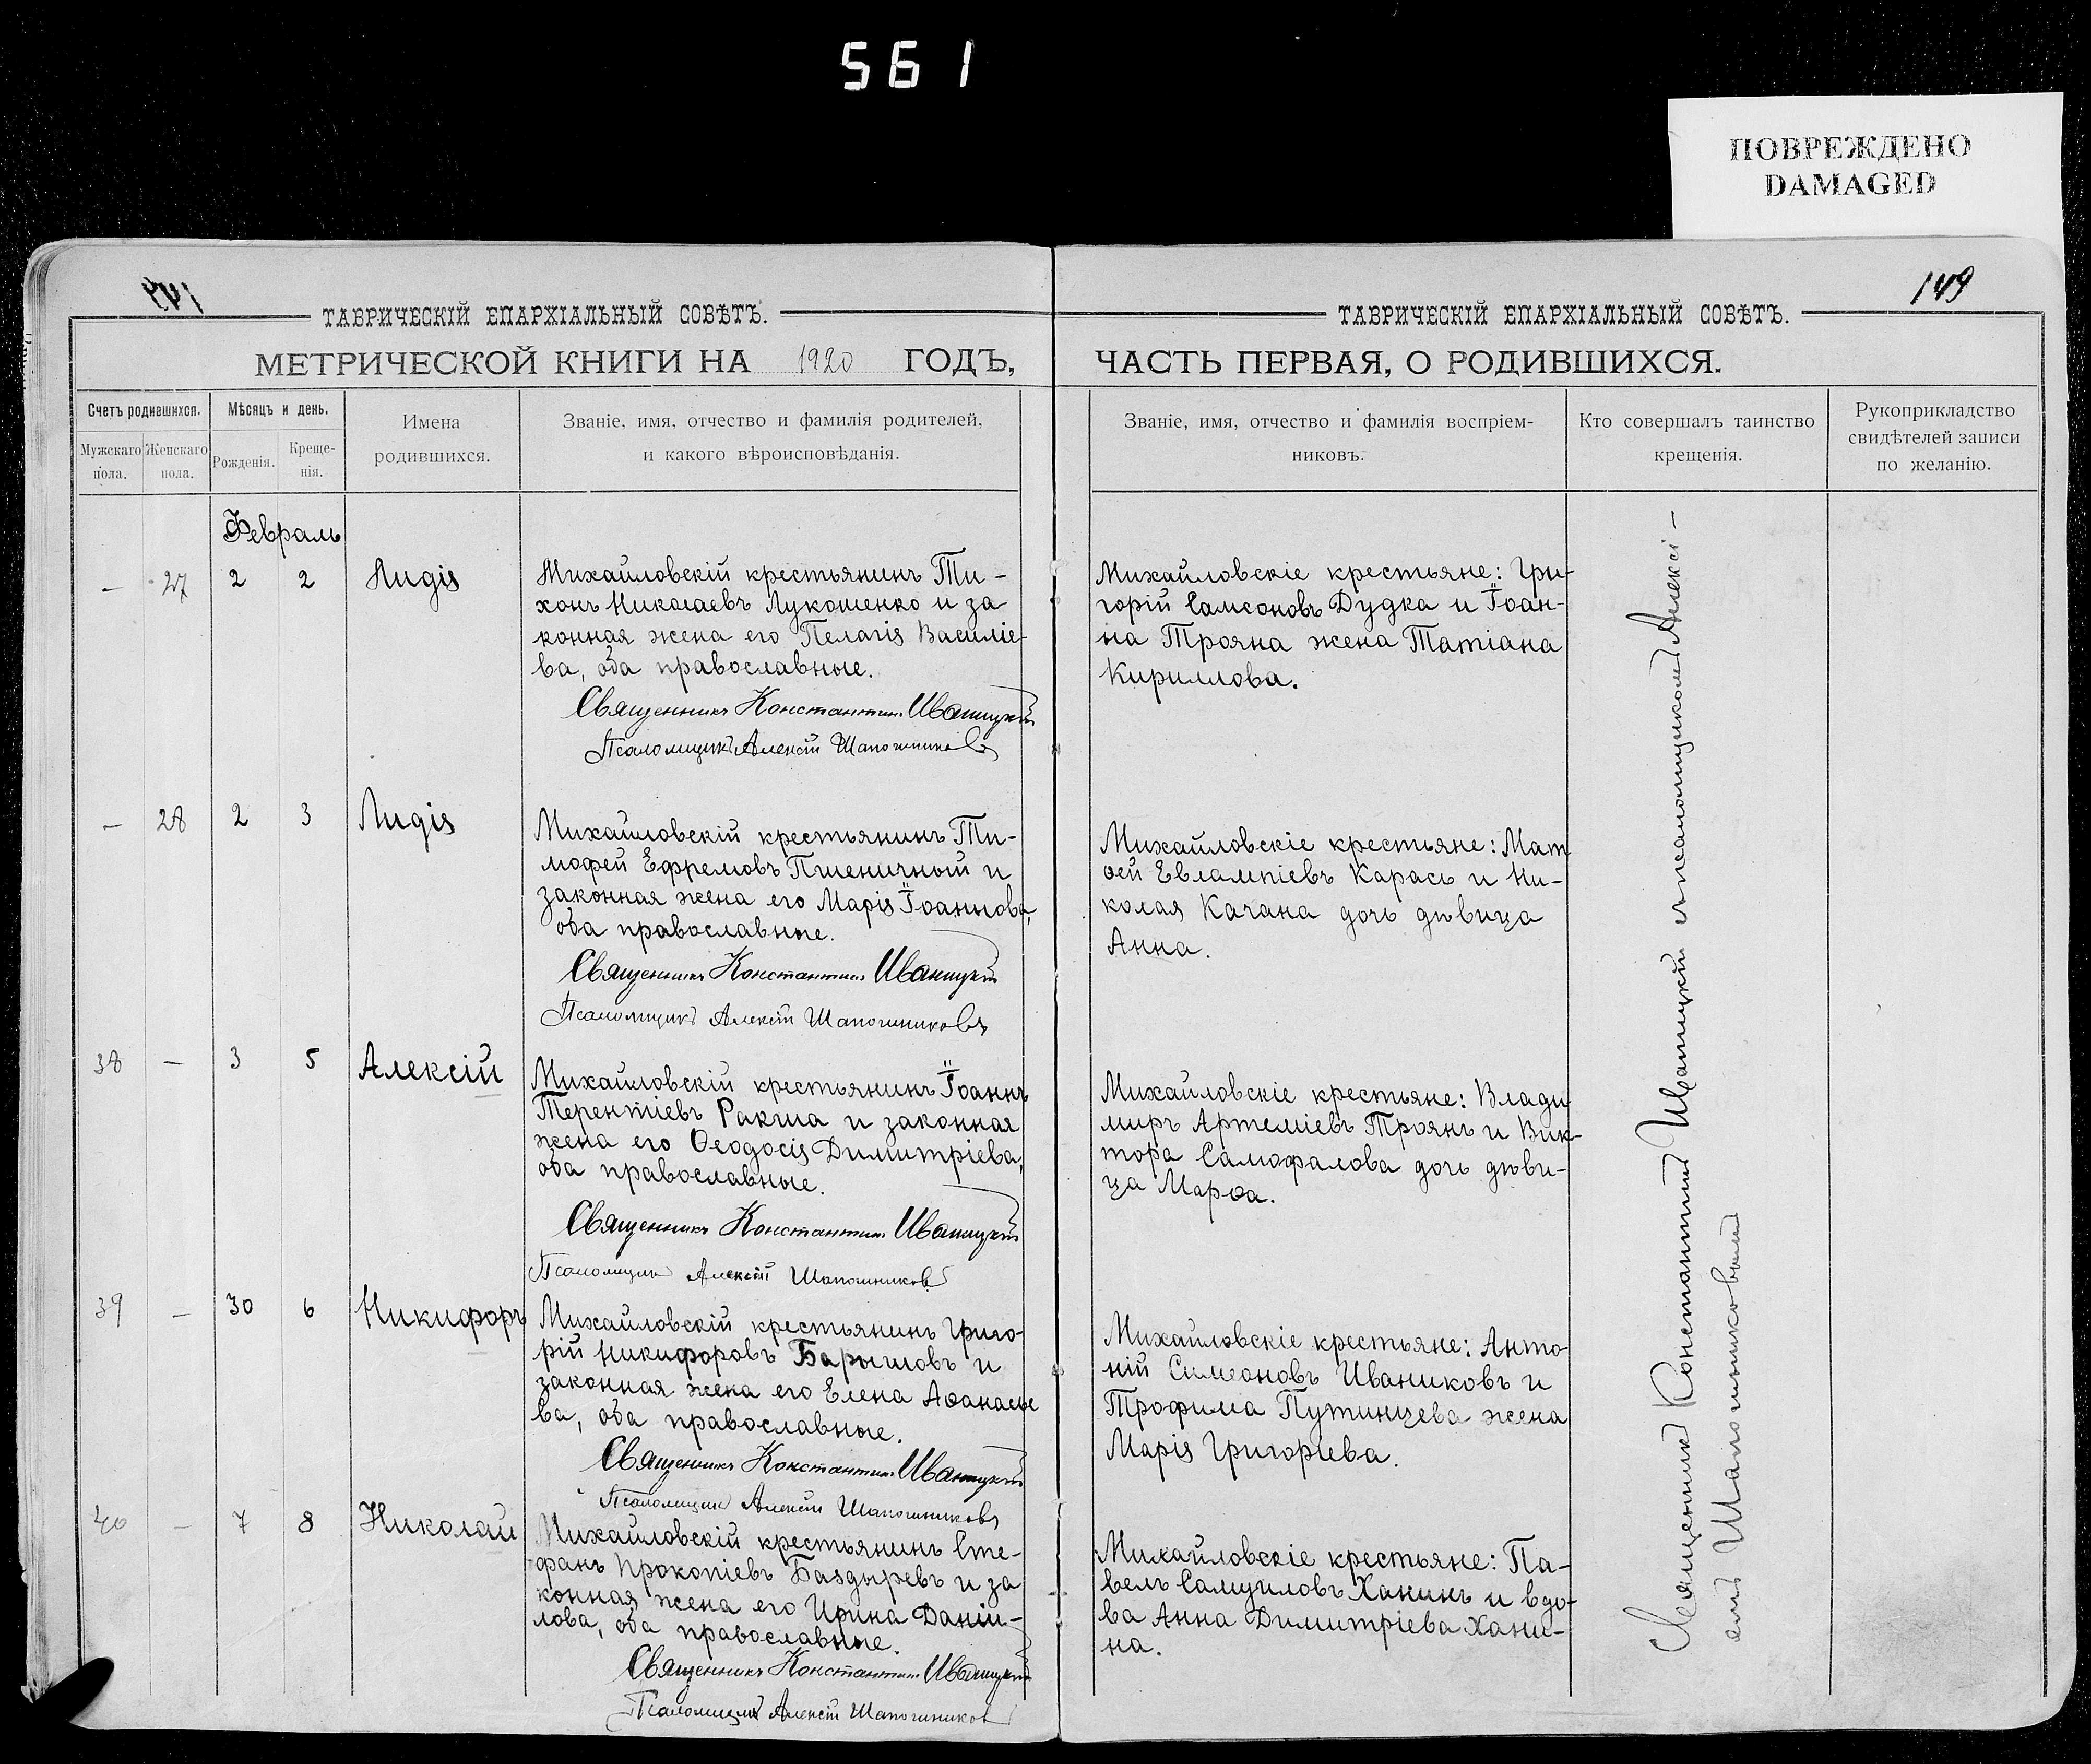 561
ПОВРЕЖДЕНО
DAMAGED
149
ТАВРИЧЕСКІЙ ЕПАРХІАЛЬНЫЙ СОВѢТЪ.
ТАВРИЧЕСКІЙ ЕПАРХІАЛЬНЫЙ СОВѢТЪ.
МЕТРИЧЕСКОЙ КНИГИ НА 1920 ГОДЪ,
ЧАСТЬ ПЕРВАЯ, О РОДИВШИХСЯ.
Счетъ родившихся.
Мужскаго пола.
Женскаго пола.
Мѣсяцъ и день.
Рожденія.
Креще-
нія.
Имена
родившихся.
Званіе, имя, отчество и фамилія родителей,
и какого вѣроисповѣданія.
Званіе, имя, отчество и фамилія воспріем-
никовъ.
Кто совершалъ таинство
крещенія.
Рукоприкладство
свидѣтелей записи
по желанію.
Февраль
— 27 2 2 Лидія
Михайловскій крестьянинъ Ти-
хонъ Николаевъ Лукошенко и за
конная жена его Пелагія Василіе-
ва, оба православные.
Священникъ Константинъ Иваницкій
Псаломщикъ Алексій Шапошниковъ
Михайловскіе крестьяне: Гри-
горій Самсоновъ Дудка и Іоан-
на Трояна жена Татіана
Кириллова.
— 28 2 3 Лидія
Михайловскій крестьянинъ Ти-
мофей Ефремовъ Пшеничной и
законная жена его Марія Іоаннова,
оба православные.
Священникъ Константинъ Иваницкій
Псаломщикъ Алексій Шапошниковъ
Михайловскіе крестьяне: Мат
ѳей Евлампіевъ Карась и Ни-
колая Качана дочь дѣвица
Анна.
38 — 3 5 Алексій
Михайловскій крестьянинъ Іоаннъ
Терентіевъ Ракша и законная
жена его Ѳеодосія Димитріева,
оба православные.
Священникъ Константинъ Иваницкій
Псаломщикъ Алексій Шапошниковъ
Михайловскіе крестьяне: Влади
миръ Артеміевъ Троянъ и Вик-
тора Самофалова дочь дѣви-
ца Марѳа.
39 — 30 6 Никифоръ
Михайловскій крестьянинъ Григо-
рій Никифоровъ Барышовъ и
законная жена его Елена Аѳанасье
ва, оба православные.
Священникъ Константинъ Иваницкій
Псаломщикъ Алексій Шапошниковъ
Михайловскіе крестьяне: Анто-
ній Симеоновъ Иваниковъ и
Трофима Путинцева жена
Марія Григоріева.
40 — 7 8 Николай
Михайловскій крестьянинъ Сте-
фанъ Прокопіевъ Баздыревъ и за
конная жена его Ирина Даніи-
лова, оба православные.
Священникъ Константинъ Иваницкій
Псаломщикъ Алексій Шапошниковъ
Михайловскіе крестьяне: Па-
велъ Самуиловъ Ханинъ и вдо-
ва Анна Димитріева Хани-
на.
Священникъ Константинъ Иваницкій и псаломщикомъ Алексі-
емъ Шапошниковымъ